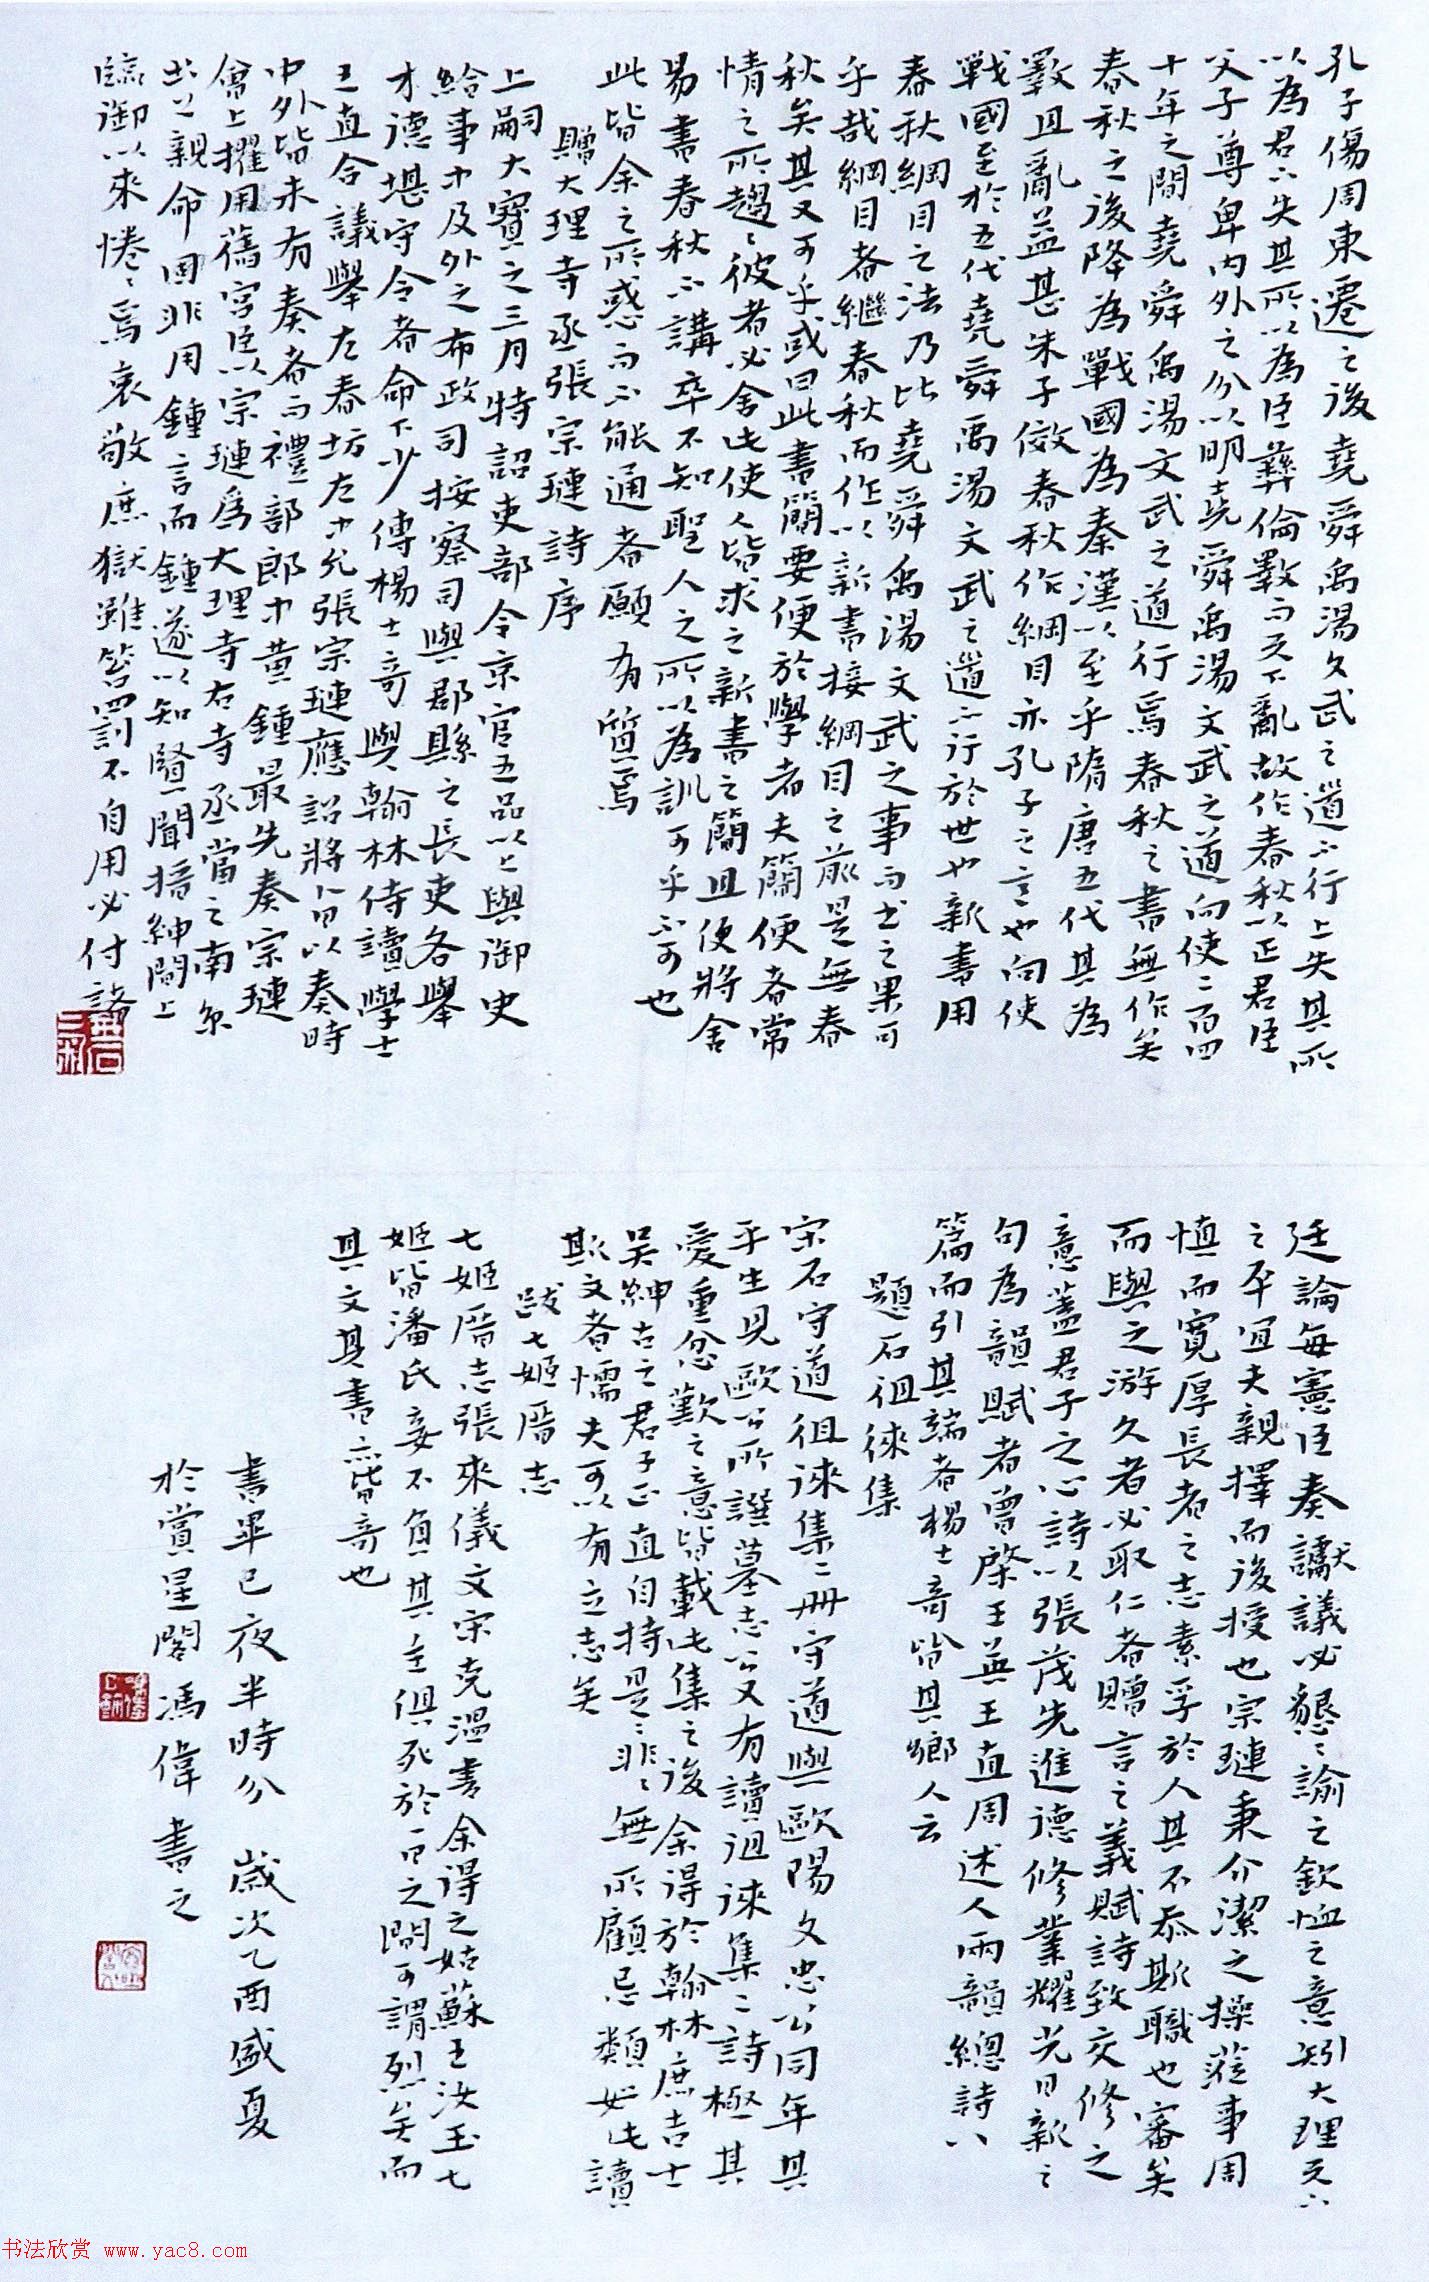 孔子傷周東遷之後堯舜禹湯文武之道不行上失其所
以為君下失其所以為臣彝倫斁而天下亂故作春秋以正君臣
父子尊卑內外之分以明堯舜禹湯文武之道向使二百四
十年之間堯舜禹湯文武之道行焉春秋之書無作矣
春秋之後降為戰國為秦漢以至乎隋唐五代其為
斁且亂益甚朱子倣春秋作綱目亦孔子之意也向使
戰國至於五代堯舜禹湯文武之道不行於世也新書用
春秋綱目之法乃比堯舜禹湯文武之事而書之果可
乎哉綱目者繼春秋而作以新書接綱目之前是無春
秋矣其又可乎或曰此書簡要便於學者夫簡便者常
情之所趨趨彼者必舍此使人皆求之新書之簡且便將舍
易書春秋不講卒不知聖人之所以為訓可乎不可也
此皆余之所惑而不能通者願有質焉
贈大理寺丞張宗璉詩序
上嗣大寶之三月特詔吏部令京官五品以上與御史
給事中及外之布政司按察司與郡縣之長吏各舉
才德堪守令者命下少傅楊士奇與翰林侍讀學士
王直合議舉左春坊左中允張宗璉應詔將以奏時
中外皆未有奏者而禮部郎中黃鍾最先奏宗璉
會上擢用舊宮臣以宗璉為大理寺右寺丞當之南京
出上親命固非用鍾言而鍾遂以知賢聞搢紳間上
臨御以來惓惓焉哀敬庶獄雖笞罰不自用必付諸
廷論每憲臣奏讞議必懇懇諭之欽恤之意矧大理天下
之平宜夫親擇而後授也宗璉秉介潔之操蒞事周
慎而寬厚長者之志素孚於人其不忝斯職也審矣
而與之游久者必取仁者贈言之義賦詩致交修之
意蓋君子之心詩以張茂先進德修業耀光日新之
句為韻賦者曾棨王英王直周述人兩韻總詩八
篇而引其端者楊士奇皆其鄉人云
題石徂徠集
宋石守道徂徠集二冊守道與歐陽文忠公同年其
平生見歐公所譔墓志公又有讀徂徠集二詩極其
愛重忿歎之意皆載此集之後余得於翰林庶吉士
吳紳古之君子正直自持是是非非無所顧忌類如此讀
其文者懦夫可以有立志矣
跋七姬厝志
七姬厝志張來儀文宋克溫書余得之姑蘇王汝玉七
姬皆潘氏妾不負其主俱死於一日之間可謂烈矣而
其文其書亦皆奇也
書畢已夜半時分 歲次乙酉盛夏
於賞星閣馮偉書之
书法欣赏 www.yac8.com